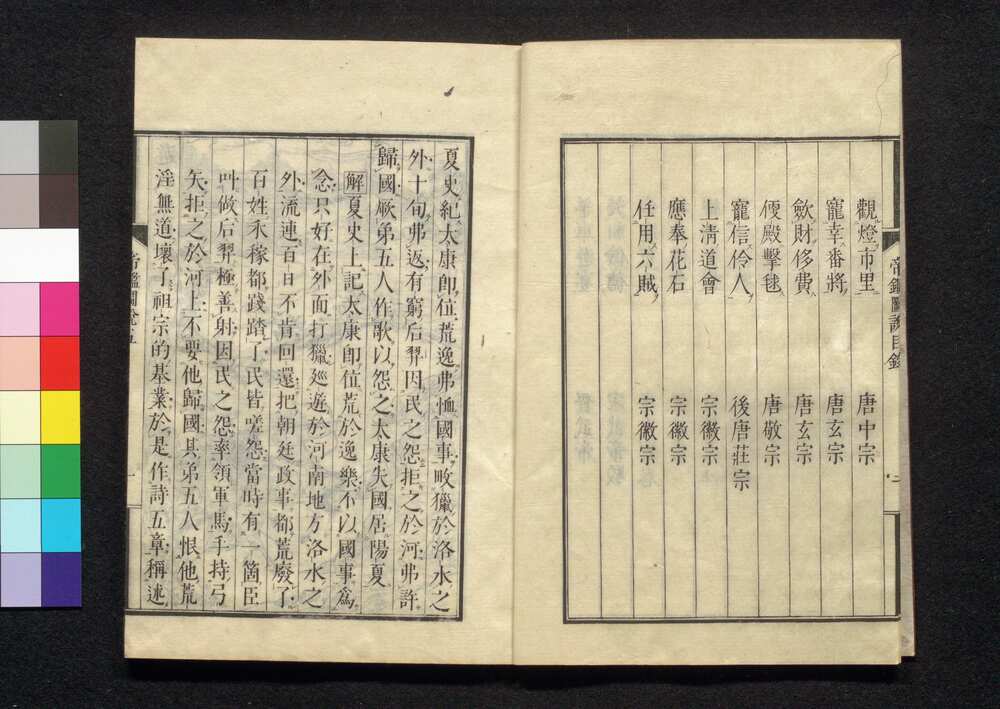 帝鑑圖說目錄
觀燈市里 唐中宗
寵幸番將 唐玄宗
歛財侈費 唐玄宗
便殿擊毬 唐敬宗
寵信伶人 後唐莊宗
上清道會 宋徽宗
應奉花石 宋徽宗
任用六賊 宋徽宗
夏史紀太康卽位荒逸弗恤國事畋獵於洛水之
外十旬弗返有窮后羿因民之怨拒之於河弗許
歸國厥弟五人作歌以怨之太康失國居陽夏
解夏史上記太康卽位荒於逸樂不以國事爲
念只好在外面打獵廵遊於河南地方洛水之
外流連百日不肯回還把朝廷政事都荒廢了
百姓禾稼都踐蹅了民皆嗟怨當時有一箇臣
叫做后羿極善射因民之怨率領軍馬手持弓
矢拒之於河上不要他歸國其弟五人恨他荒
淫無道壞了祖宗的基業於是作詩五章稱述